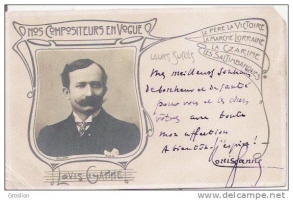 NOS COMPOSITEURS EN VOGUE
LE PÈRE LA VICTOIRE
LA MARCHE LORRAINE
LA CZARINE
LES SALTIMBANQUES
LEURS SUCCÈS
Mes meilleurs souhaits
de bonheur et de santé
pour vous et les chers
vôtres avec toute
mon affection
A bientôt j'espère !
Louis Ganne
LOUIS GANNE